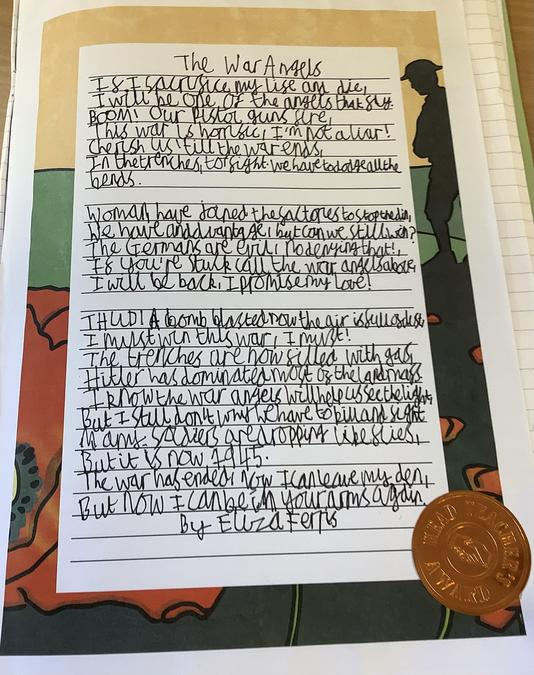 The War Angels
If I sacrifice my life and die,
I will be one of the angels that fly.
BOOM! Our Pistol guns fire,
This war is horrific, I'm not a liar!
Cherish us 'till the war ends,
In the trenches, to fight we have to dodge all the
bends.
Woman have joined the factories to stop the din,
We have andvantage, but can we still win?
The Germans are evil, no denying that!,
If you're stuck call the war angels above,
I will be back, I promise my love!
THUD! A bomb blasted now the air is full of dust,
I must win this war, I must!
The trenches are now filled with gas,
Hitler has dominated most of the land mass
I know the war angels will help us see the light,
But I still don't why we have to kill and fight
Many soldiers are dropping like flies,
But it is now 1945.
The war has ended, now I can leave my den,
But now I can be in your arms again.
By Eliza Ferris
HEAD TEACHER'S
AWARD